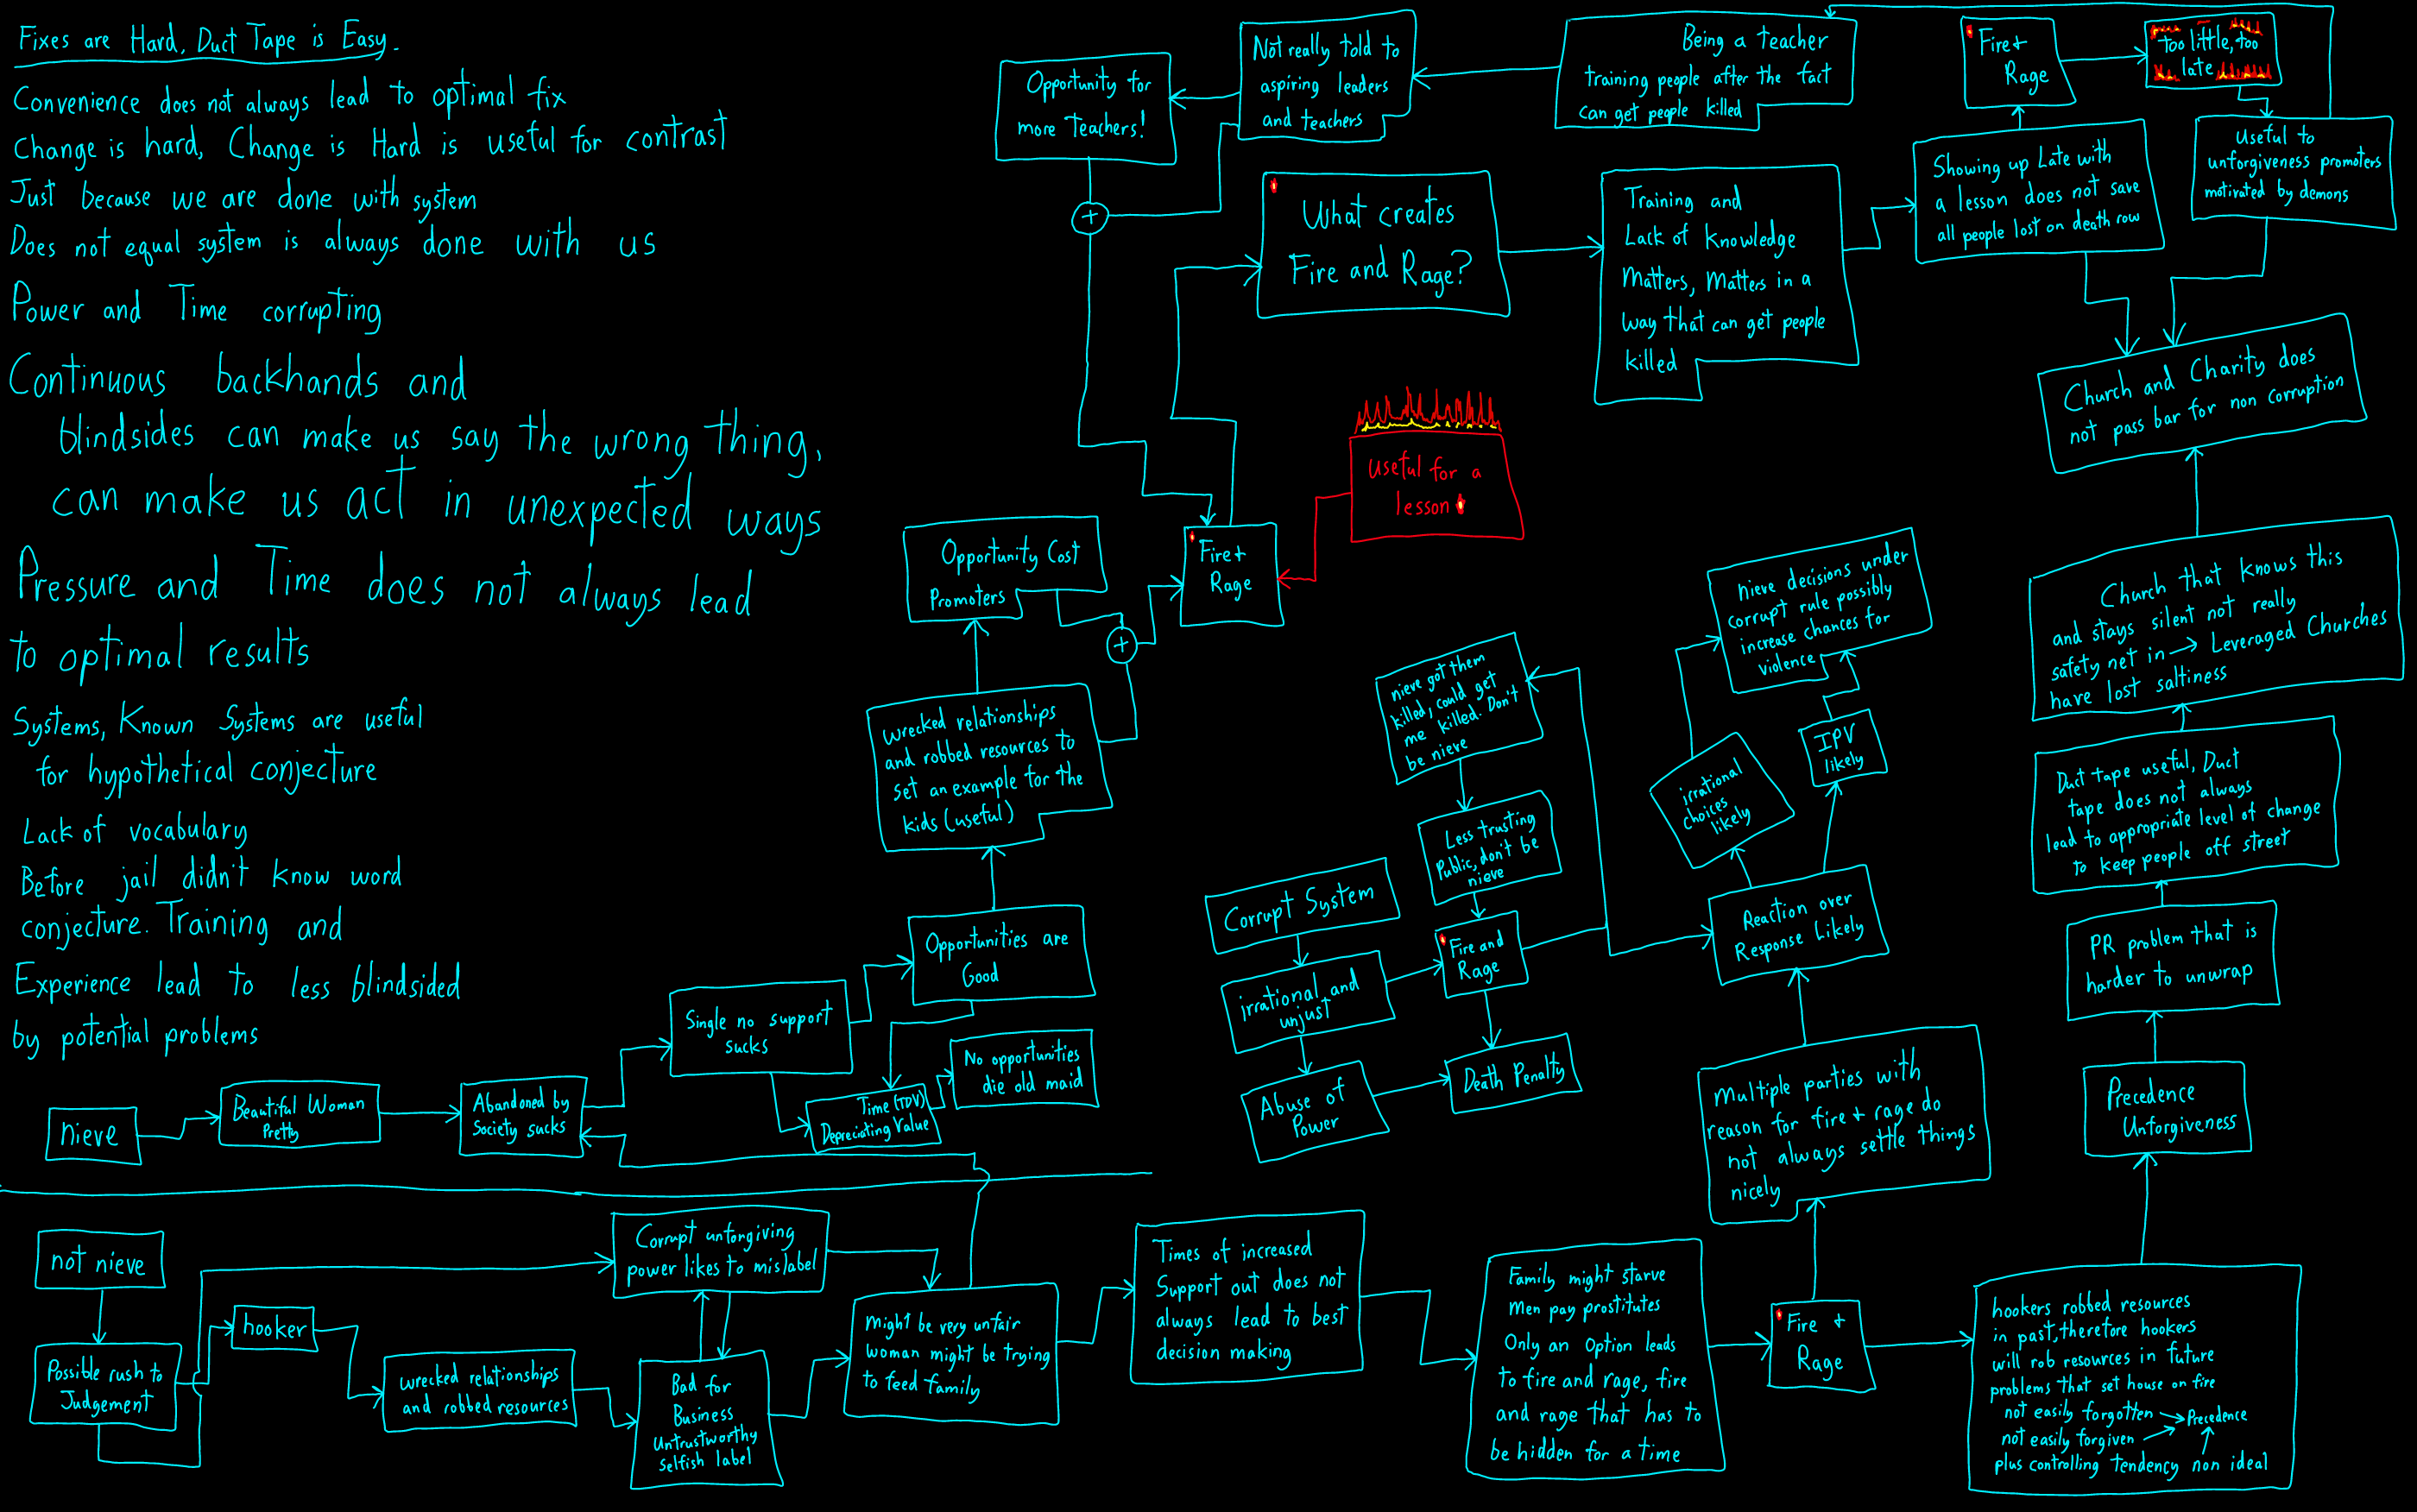 Fixes are Hard, Duct Tape is Easy.
Convenience does not always lead to optimal fix
Change is hard, Change is Hard is useful for contrast
Just because we are done with system
Does not equal system is always done with us
Power and Time corrupting
Continuous backhands and
blindsides can make us say the wrong thing,
can make us act in unexpected ways
Pressure and Time does not always lead
to optimal results
Systems, Known Systems are useful
for hypothetical conjecture
Lack of vocabulary
Before jail didn't know word
conjecture. Training and
Experience lead to less blindsided
by potential problems
nieve
Beautiful Woman
Pretty
Abandoned by
Society sucks
Single no support
sucks
Opportunities are
Good
Time (TDV)
Depreciating Value
No opportunities
die old maid
wrecked relationships
and robbed resources to
set an example for the
kids (useful)
Opportunity Cost
Promoters
+
Fire +
Rage
useful for a
lesson
What creates
Fire and Rage?
Training and
Lack of Knowledge
Matters, Matters in a
way that can get people
killed
Showing up Late with
a lesson does not save
all people lost on death row
Fire +
Rage
too little, too
late
Useful to
unforgiveness promoters
motivated by demons
Being a teacher
training people after the fact
can get people killed
Not really told to
aspiring leaders
and teachers
Opportunity for
more Teachers!
+
Church and Charity does
not pass bar for non corruption
Church that knows this
and stays silent not really
safety net in → Leveraged Churches
have lost saltiness
Duct tape useful, Duct
tape does not always
lead to appropriate level of change
to keep people off street
PR problem that is
harder to unwrap
Precedence
Unforgiveness
Corrupt System
irrational and
unjust
Abuse of
Power
Death Penalty
Fire and
Rage
Less trusting
Public, don't be
nieve
nieve got them
killed, could get
me killed. Don't
be nieve
nieve decisions under
corrupt rule possibly
increase chances for
violence
irrational
choices
likely
IPV
likely
Reaction over
Response Likely
Multiple parties with
reason for fire + rage do
not always settle things
nicely
not nieve
Possible rush to
Judgement
hooker
wrecked relationships
and robbed resources
Corrupt unforgiving
power likes to mislabel
Bad for
Business
Untrustworthy
selfish label
might be very unfair
woman might be trying
to feed family
Times of increased
Support out does not
always lead to best
decision making
Family might starve
Men pay prostitutes
Only an Option leads
to fire and rage, fire
and rage that has to
be hidden for a time
Fire +
Rage
hookers robbed resources
in past, therefore hookers
will rob resources in future
problems that set house on fire
not easily forgotten → Precedence
not easily forgiven
plus controlling tendency non ideal